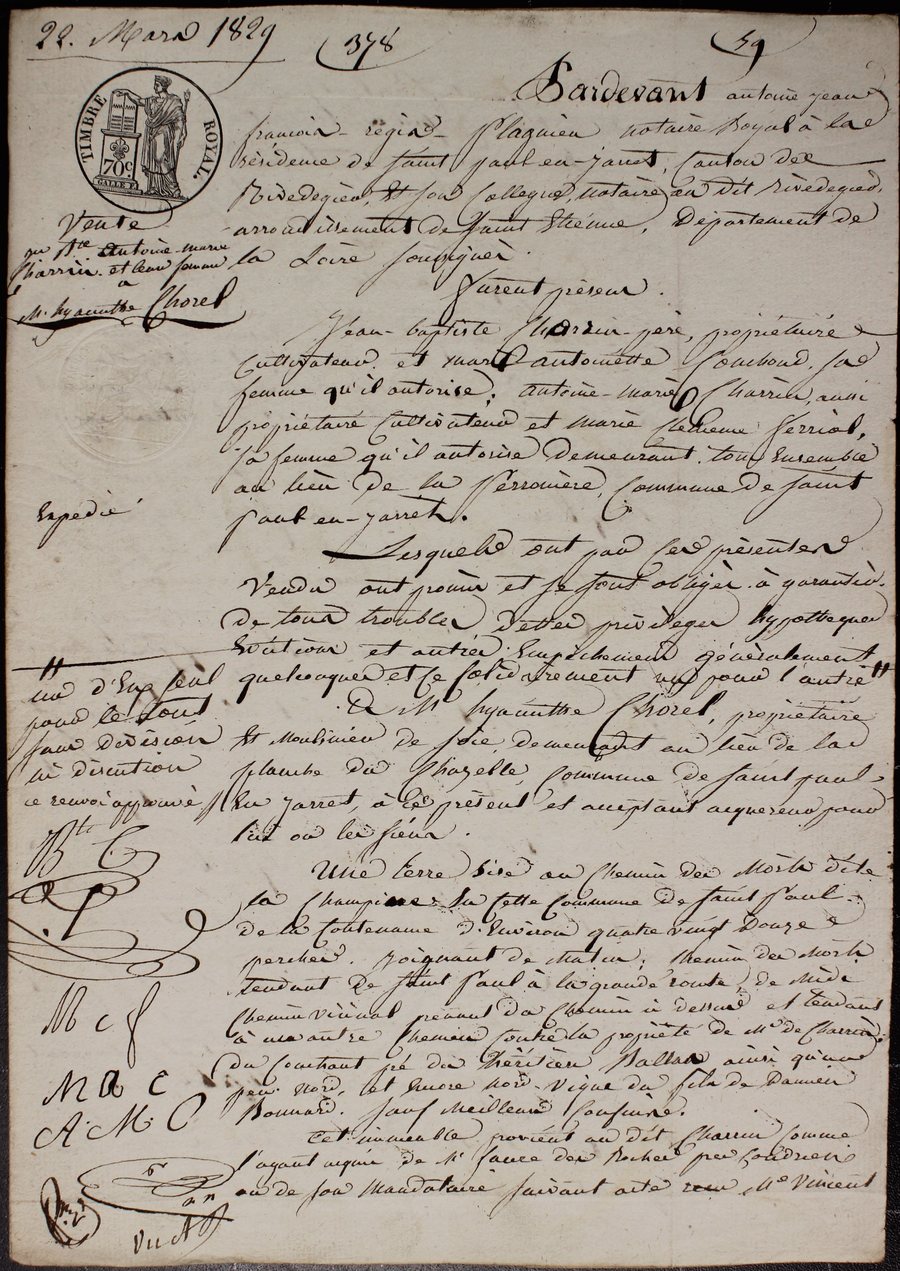 22. Mars 1829
378
59
TIMBRE ROYAL.
70c.
Pardevant antoine jean
francois-regis- Flaqnieu notaire Royal à la
résidence de Saint paul-en-jarret, Canton de
Rivedegier, Et son Collegue, notaire au dit Rivedegier,
arrondissement de Saint Etienne, Département de
la Loire soussignés.
Vente
par Antoine-marie
Charrin et leur femme
a
Mr hyacinthe Chorel
Furent présens.
Jean-baptiste Charrin-père, propriétaire
Cultivateur et marie antoinette Couchoud, sa
femme qu'il autorise; antoine-marie Charrin, aussi
propriétaire Cultivateur et marie Ferriol,
sa femme qu'il autorise demeurant tous Ensemble
au lieu de la Ferronière, Commune de Saint
paul-en-jarret.
Expedié
Lesquels ont par ces présentes
Vendu ont promis et se sont obligés à garantir
de tous troubles dettes privileges hypotheques
Evictions et autres Empechemens généralement
quelconques et ce solidairement un pour l'autre"
" un d'Eux seul
pour le tout
sans division
ni discution
ce renvoi approuvé
B C
P
M C f
M a C
A. M. C
A Mr hyacinthe Chorel, propriétaire
Et Moulinier de soie, demeurant au lieu de la
planche du Chazelle, Commune de Saint paul-
En jarret, à ce présent et acceptant acquereur pour
lui ou les siens.
Une terre sise au Chemin des Morts dite
la Champ En Cette Commune de Saint Paul-
de la Contenance d'Environ quatre vingt Douze
perches. joignant de Matin, Chemin des Morts
tendant de Saint Paul à la grande route, de Midi
Chemin vicinal prenant du Chemin ci dessus et tendant
à un autre Chemin Contre la propriété de Mr de Charrin,
du Couchant pré des héritiers Ballas ainsi qu'un
peu Nord, et Encore Nord-Vigne du fils de Damien
Bonnard. Sauf Meilleurs Confins.
Cet immeuble provient au dit Charrin Comme
l'ayant acquis de Mr des Rochers
ou de son Mandataire suivant acte reçu Me Vincent